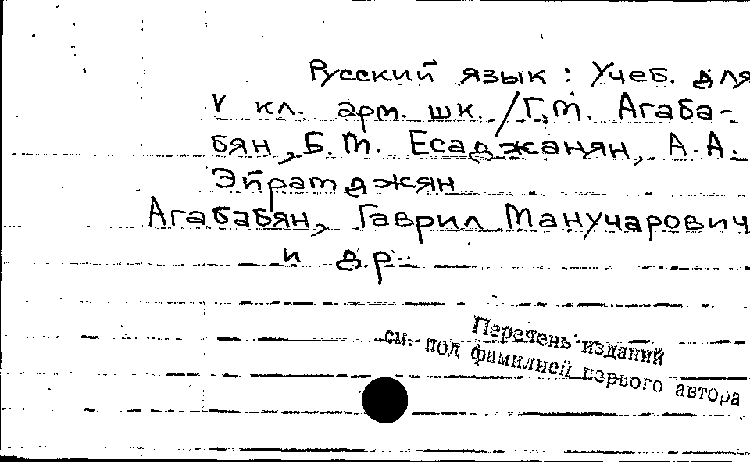 Русский язык: Учеб. для
V кл. арм. шк. / Г.М. Агаба-
бян, Б.М. Есаджанян, А.А.
Эйрамджян
Агабабян, Гаврил Манучарович
и др.
Перечень изданий
см. под фамилией первого автора